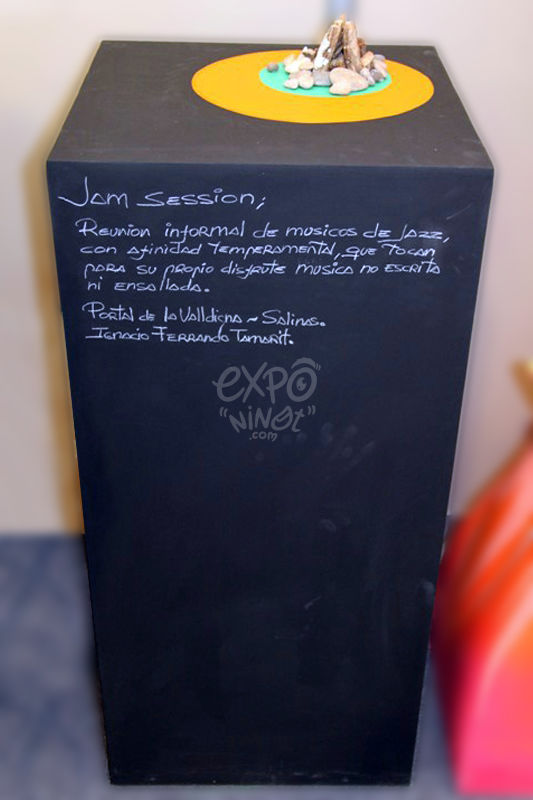 Jam session;
Reunion informal de musicos de Jazz,
con afinidad temperamental, que tocan
para su propio disfrute musica no escrita
ni ensallada.
Portal de la Valldigna ~ Salinas.
Ignacio Ferrando Tamarit.
EXPO
"NINOt"
.com